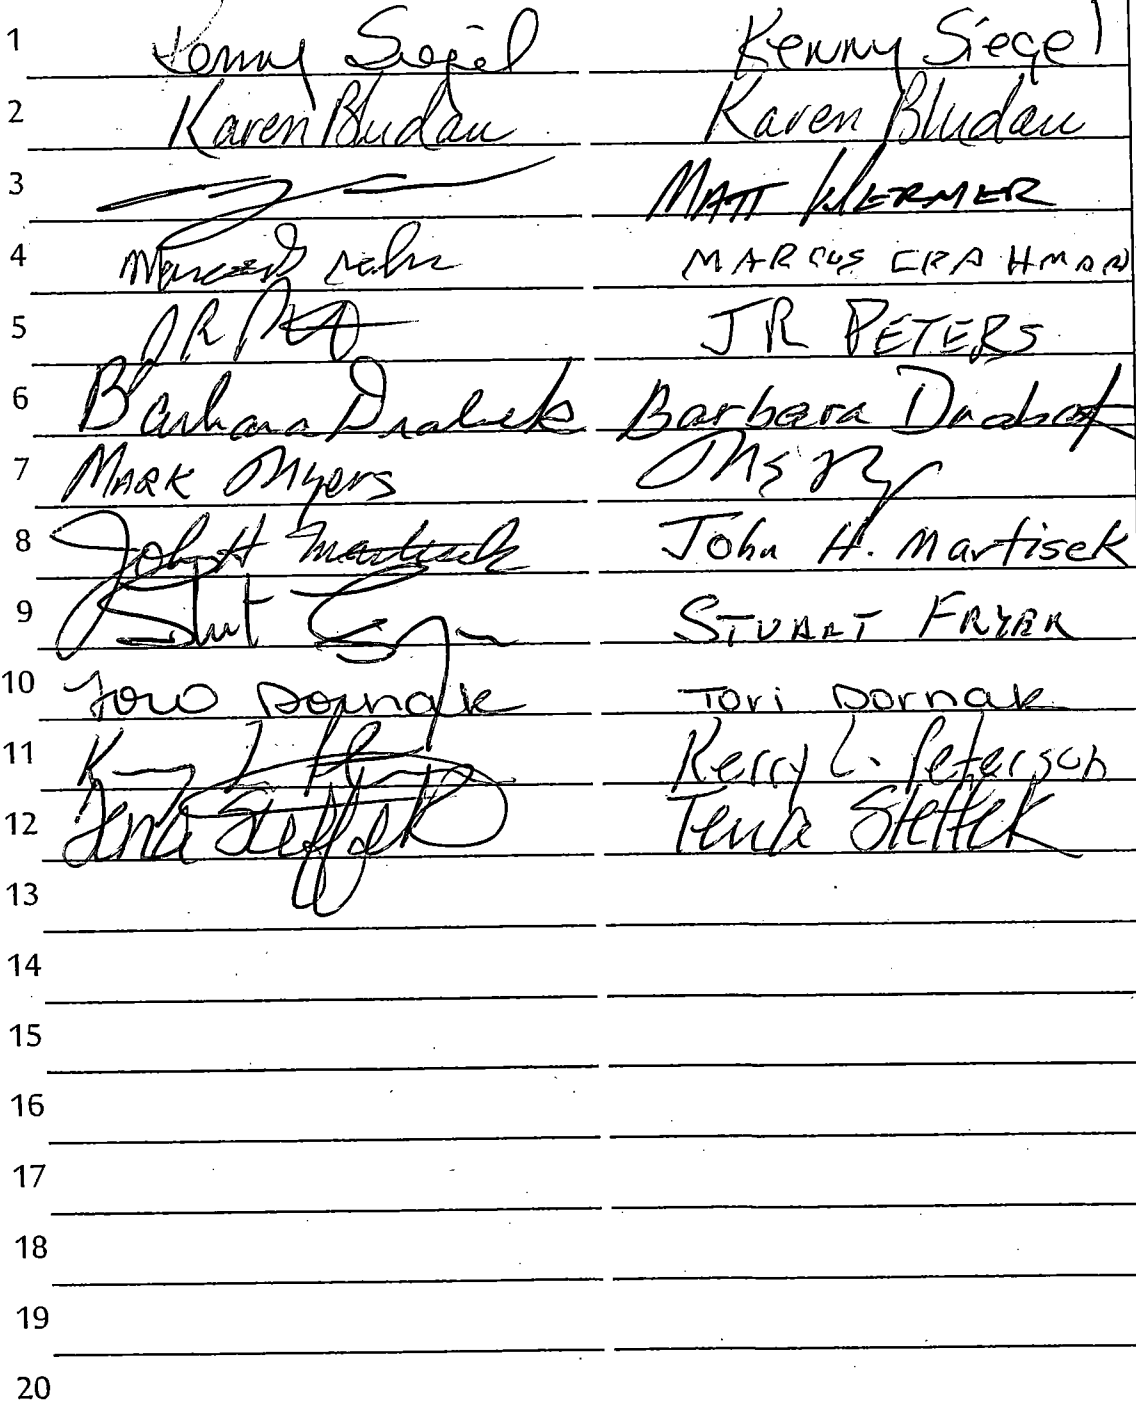 1 Kenny Siegel Kenny Siegel
2 Karen Bludau Karen Bludau
3 MATT WERMER
4 MARCUS
5 JR JR PETERS
6 Barbara Drabek Barbara Drabek
7 MARK Myers
8 John H Martisek John H. Martisek
9 STUART FRYER
10 Tori Dornak Tori Dornak
11 Kerry L. Peterson
12 Tena Steffek Tena Steffek
13
14
15
16
17
18
19
20